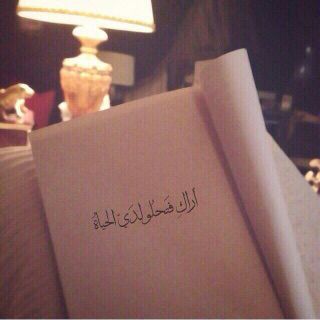 أراك فتحلو لدي الحياة